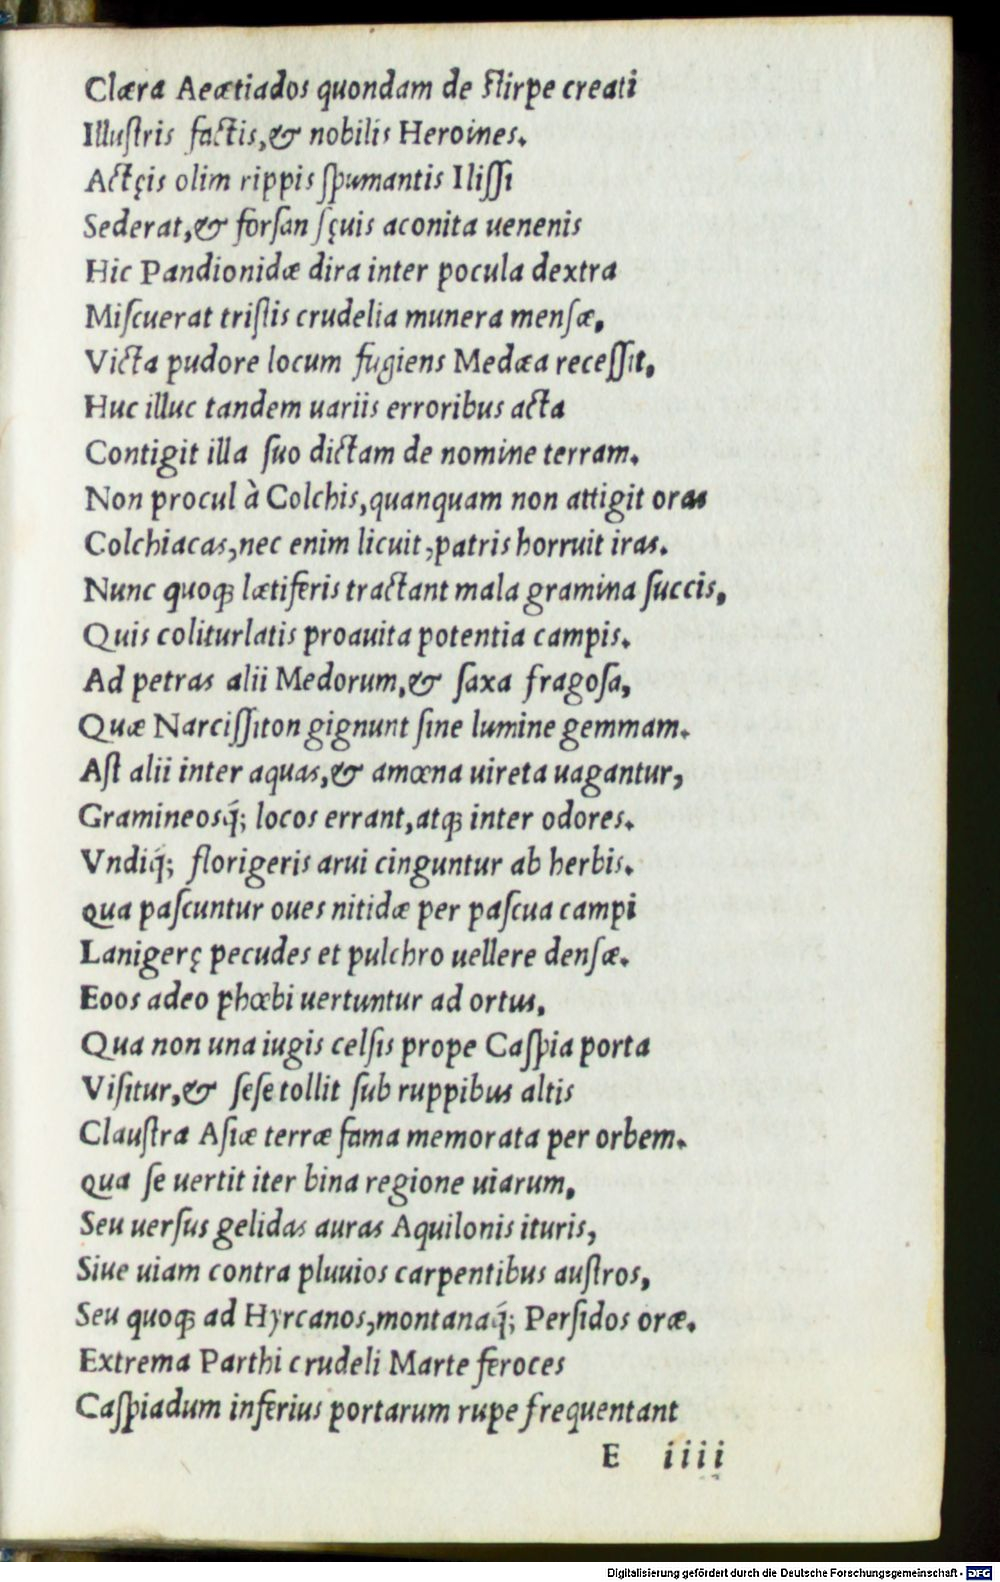 Clæra Aeætiados quondam de ſtirpe creati
Illuſtris factis,& nobilis Heroines.
Actęis olim rippis ſpumantis Iliſſi
Sederat,& forſan ſęuis aconita uenenis
Hic Pandionidæ dira inter pocula dextra
Miſcuerat triſtis crudelia munera menſæ,
Victa pudore locum fugiens Medæa receſſit,
Huc illuc tandem uariis erroribus acta
Contigit illa ſuo dictam de nomine terram.
Non procul à Colchis,quanquam non attigit oras
Colchiacas,nec enim licuit,patris horruit iras.
Nunc quoq; lætiferis tractant mala gramina ſuccis,
Quis coliturlatis proauita potentia campis.
Ad petras alii Medorum,& ſaxa fragoſa,
Quæ Narciſſiton gignunt ſine lumine gemmam.
Aſt alii inter aquas,& amœna uireta uagantur,
Gramineosq́; locos errant,atq; inter odores.
Vndiq́; florigeris arui cinguntur ab herbis.
qua paſcuntur oues nitidæ per paſcua campi
Lanigerę pecudes et pulchro uellere denſæ.
Eoos adeo phœbi uertuntur ad ortus,
Qua non una iugis celſis prope Caſpia porta
Viſitur,& ſeſe tollit ſub ruppibus altis
Clauſtra Aſiæ terræ fama memorata per orbem.
qua ſe uertit iter bina regione uiarum,
Seu uerſus gelidas auras Aquilonis ituris,
Siue uiam contra pluuios carpentibus auſtros,
Seu quoq; ad Hyrcanos,montanaq́; Perſidos oræ.
Extrema Parthi crudeli Marte feroces
Caſpiadum inferius portarum rupe frequentant
E iiii
Digitalisierung gefördert durch die Deutsche Forschungsgemeinschaft - DFG